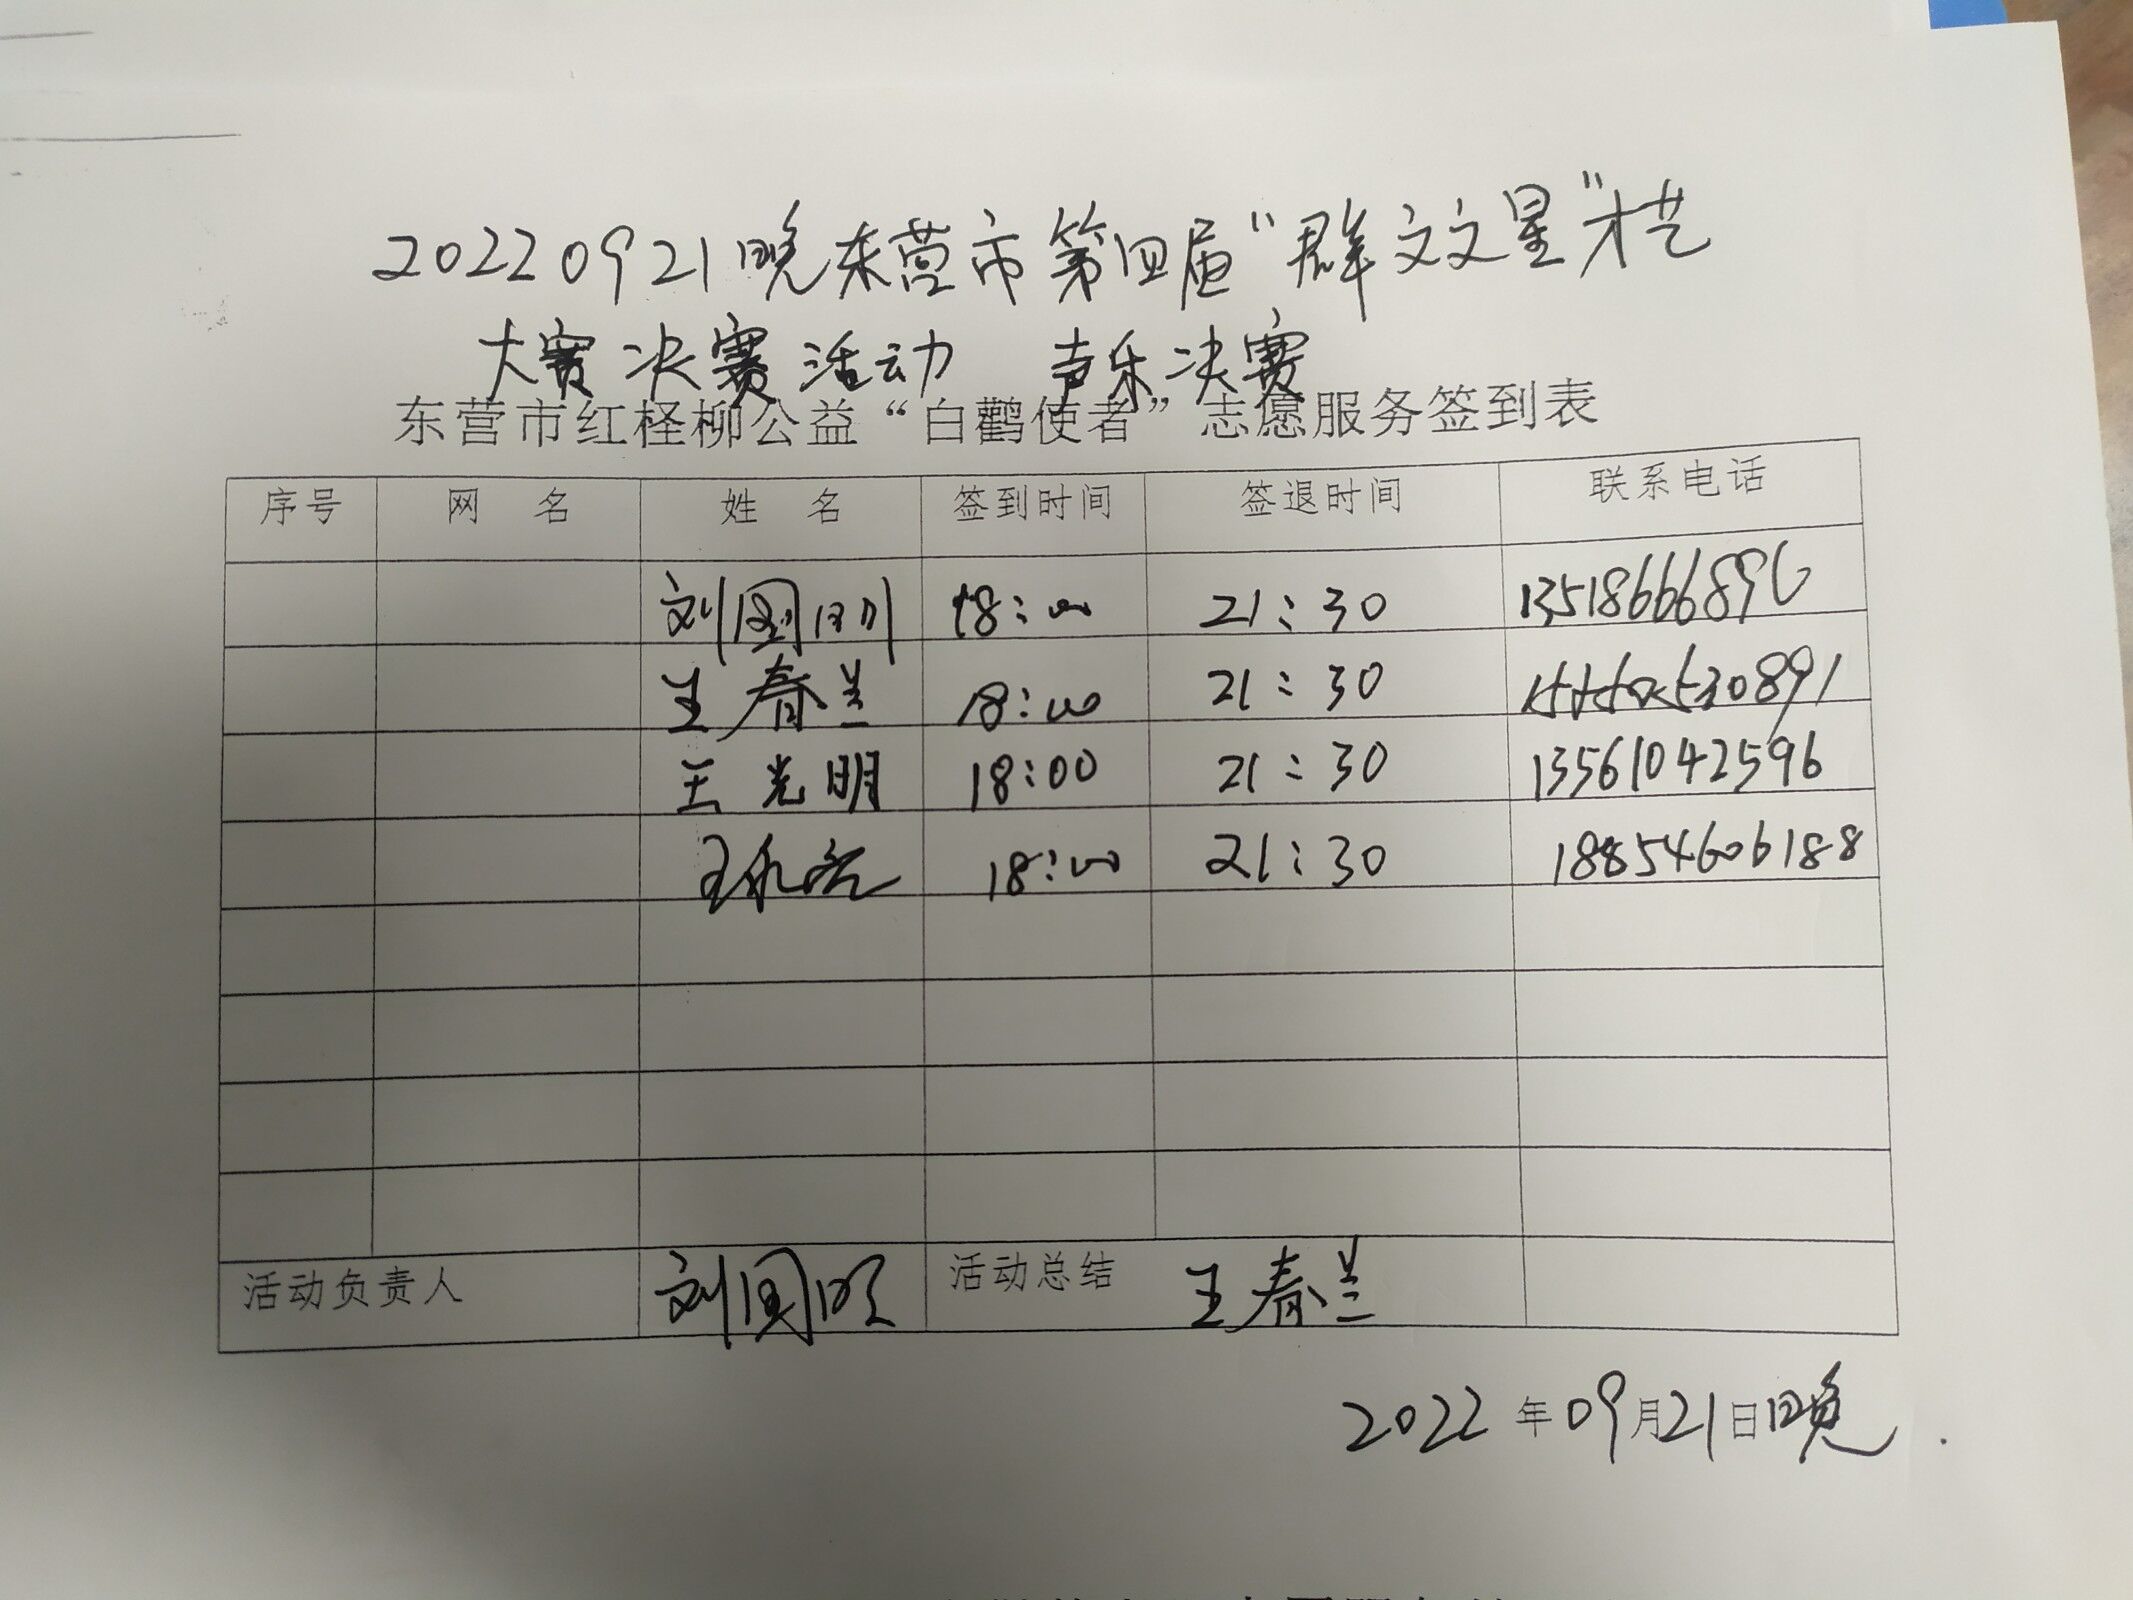 20220921晚东营市第四届“群文文星”才艺
大赛决赛活动 声乐决赛
东营市红柽柳公益“白鹳使者”志愿服务签到表
序号 网 名 姓 名 签到时间 签退时间 联系电话
刘国明 18:00 21:30 13518666896
王春兰 18:00 21:30
王光明 18:00 21:30 13561042596
18:00 21:30 18854606188
活动负责人 刘国明 活动总结 王春兰
2022年09月21日晚